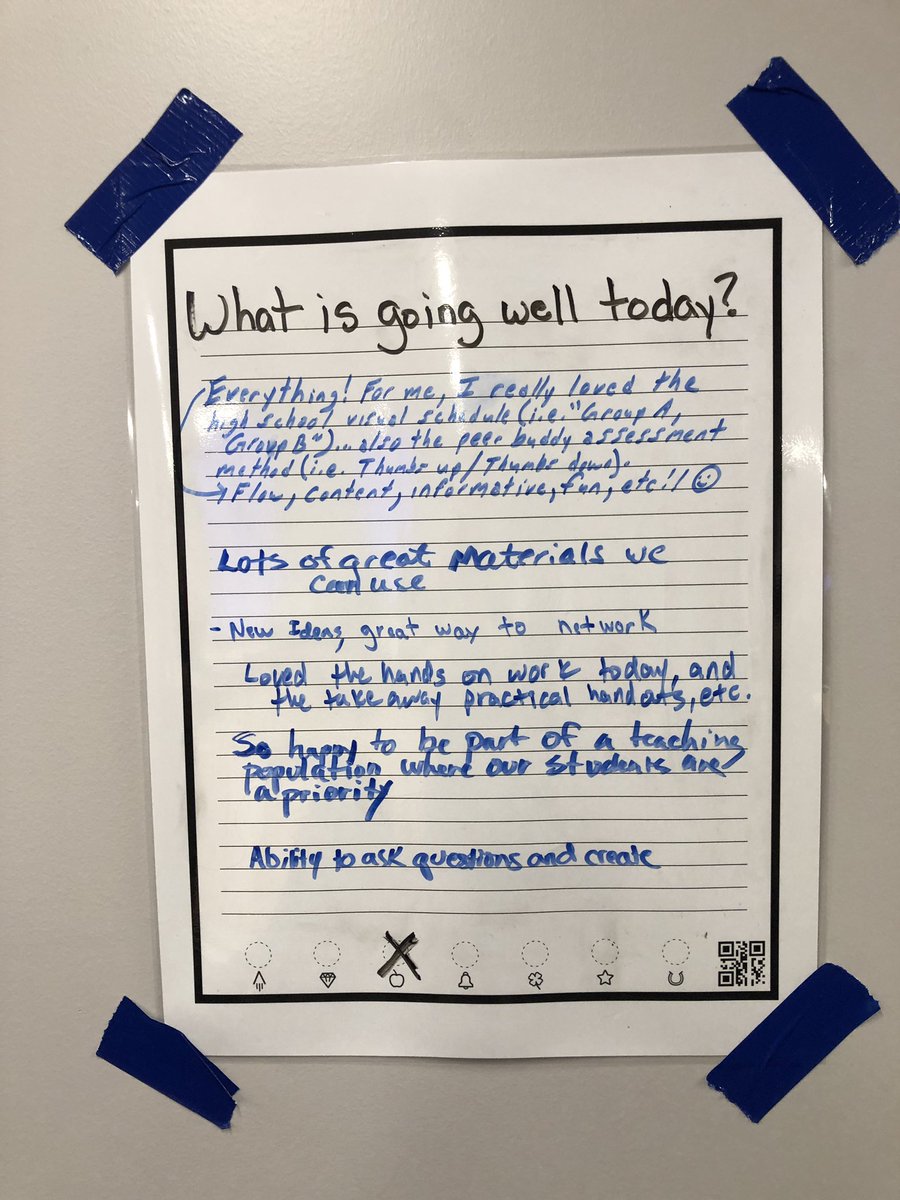 What is going well today?
Everything! For me, I really loved the
high school visual schedule (i.e. "Group A,
"Group B")... also the peer buddy assessment
method (i.e. Thumbs up/Thumbs down).
Flow, content, informative, fun, etc!!
Lots of great Materials we
can use
- New Ideas, great way to network
Loved the hands on work today, and
the take away practical handouts, etc.
So happy to be part of a teaching
population where our students are
a priority
Ability to ask questions and create